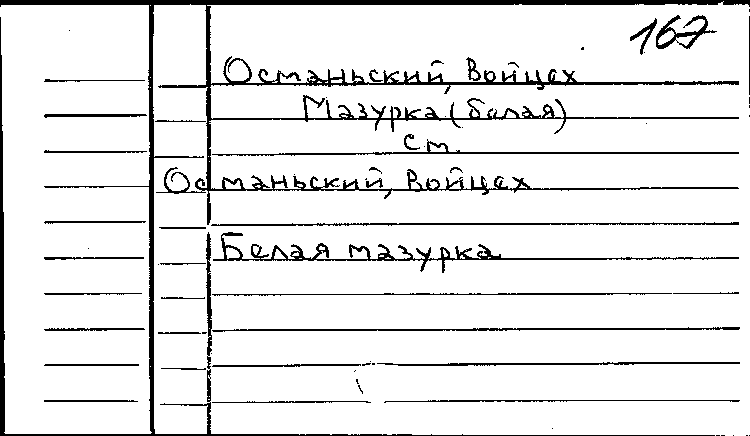 167
Османьский, Войцех
Мазурка (белая)
см.
Османьский, Войцех
Белая мазурка